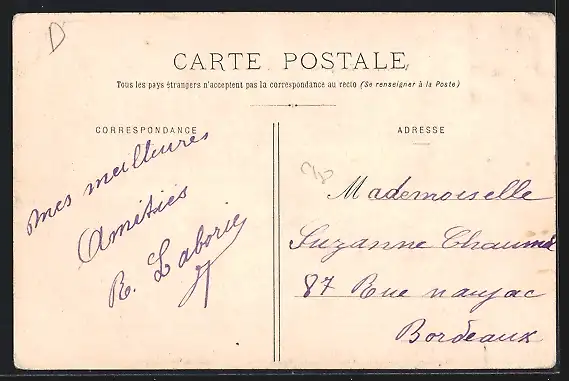 D
CARTE POSTALE
Tous les pays étrangers n'acceptent pas la correspondance au recto (Se renseigner à la Poste)
CORRESPONDANCE
mes meilleures
Amitiés
R. Laborie
ADRESSE
Mademoiselle
Suzanne
87 Rue naujac
Bordeaux